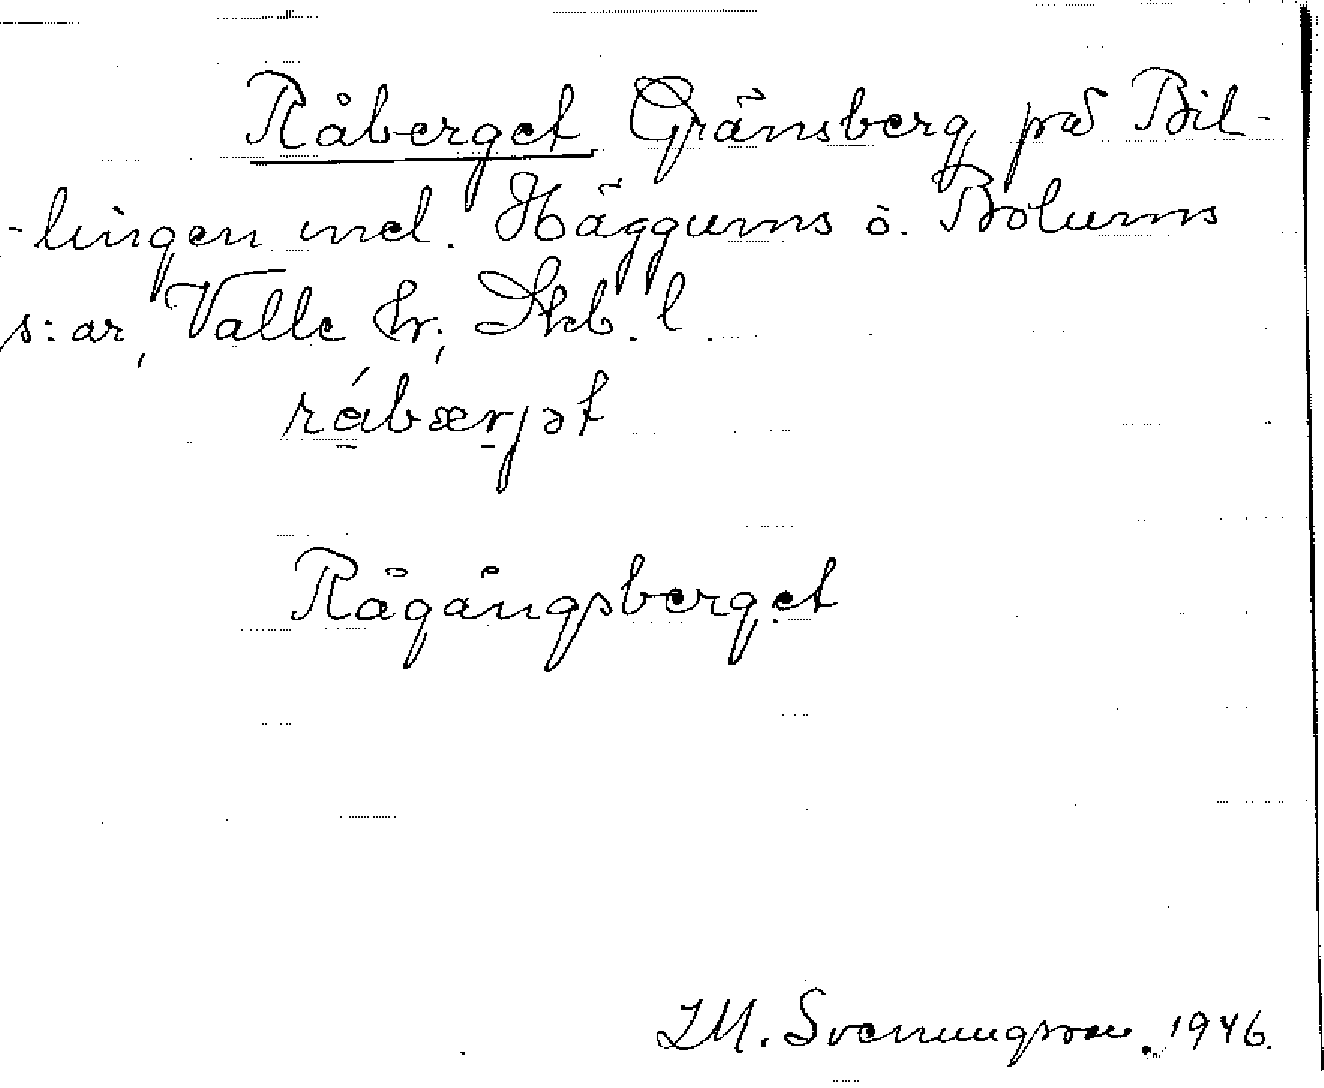 Råberget Gränsberg på Bil-
-lingen mel. Häggums o. Bolums
s:ar, Valle hr; Skb. l.
rábærjət
Rågångsberget
I M. Svenungsson. 1946.